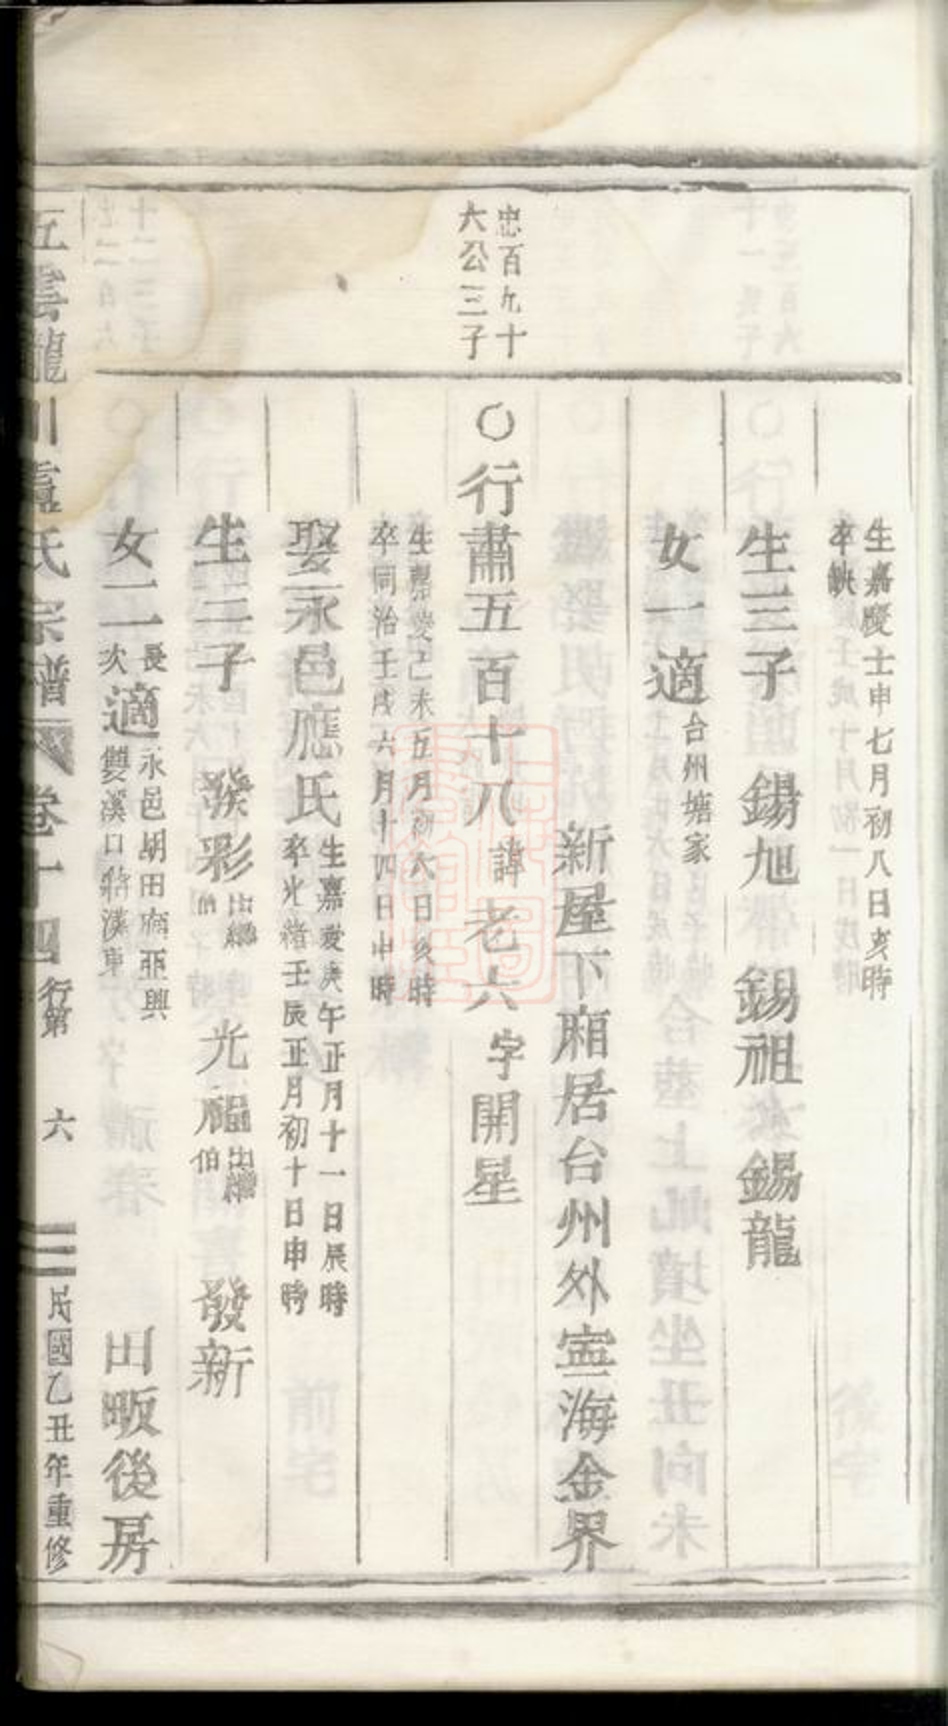 生嘉慶壬申七月初八日亥時
卒缺
生三子 錫旭 錫祖 錫龍
女一適台州塘家
新屋下廂居台州外寕海金界
忠百九十
六公三子
〇行肅五百十八諱老六字開星
生嘉慶己未五月初六日亥時
卒同治壬戌六月十四日申時
娶永邑應氏
生嘉慶庚午正月十一日辰時
卒光緒壬辰正月初十日申時
生三子 發彩出繼 光福出繼伯 發新
女二長次適永邑胡田 亜興
雙溪口蔣漢東
田畈後房
五雲龍川盧氏宗譜 卷十四 行第 六 民國乙丑年重修